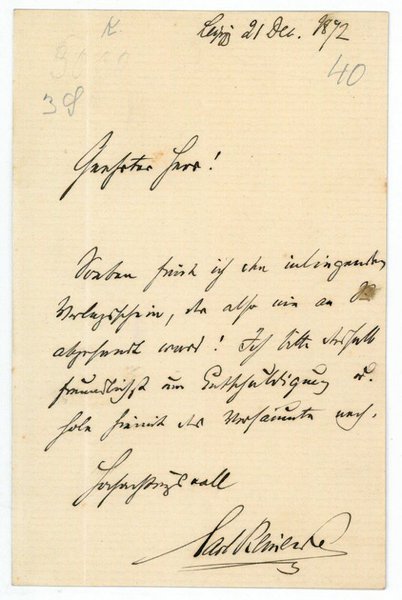 K
Leipzig 21 Dec. 1872
40
38
Geehrter Herr!
Soeben finde ich den inliegenden
Verlagsschein, der also nie an Sie
abgesandt ward! Ich bitte deshalb
freundlichst um Entschuldigung u.
hole hiermit das Versäumte nach.
Hochachtungsvoll
Carl Reinecke